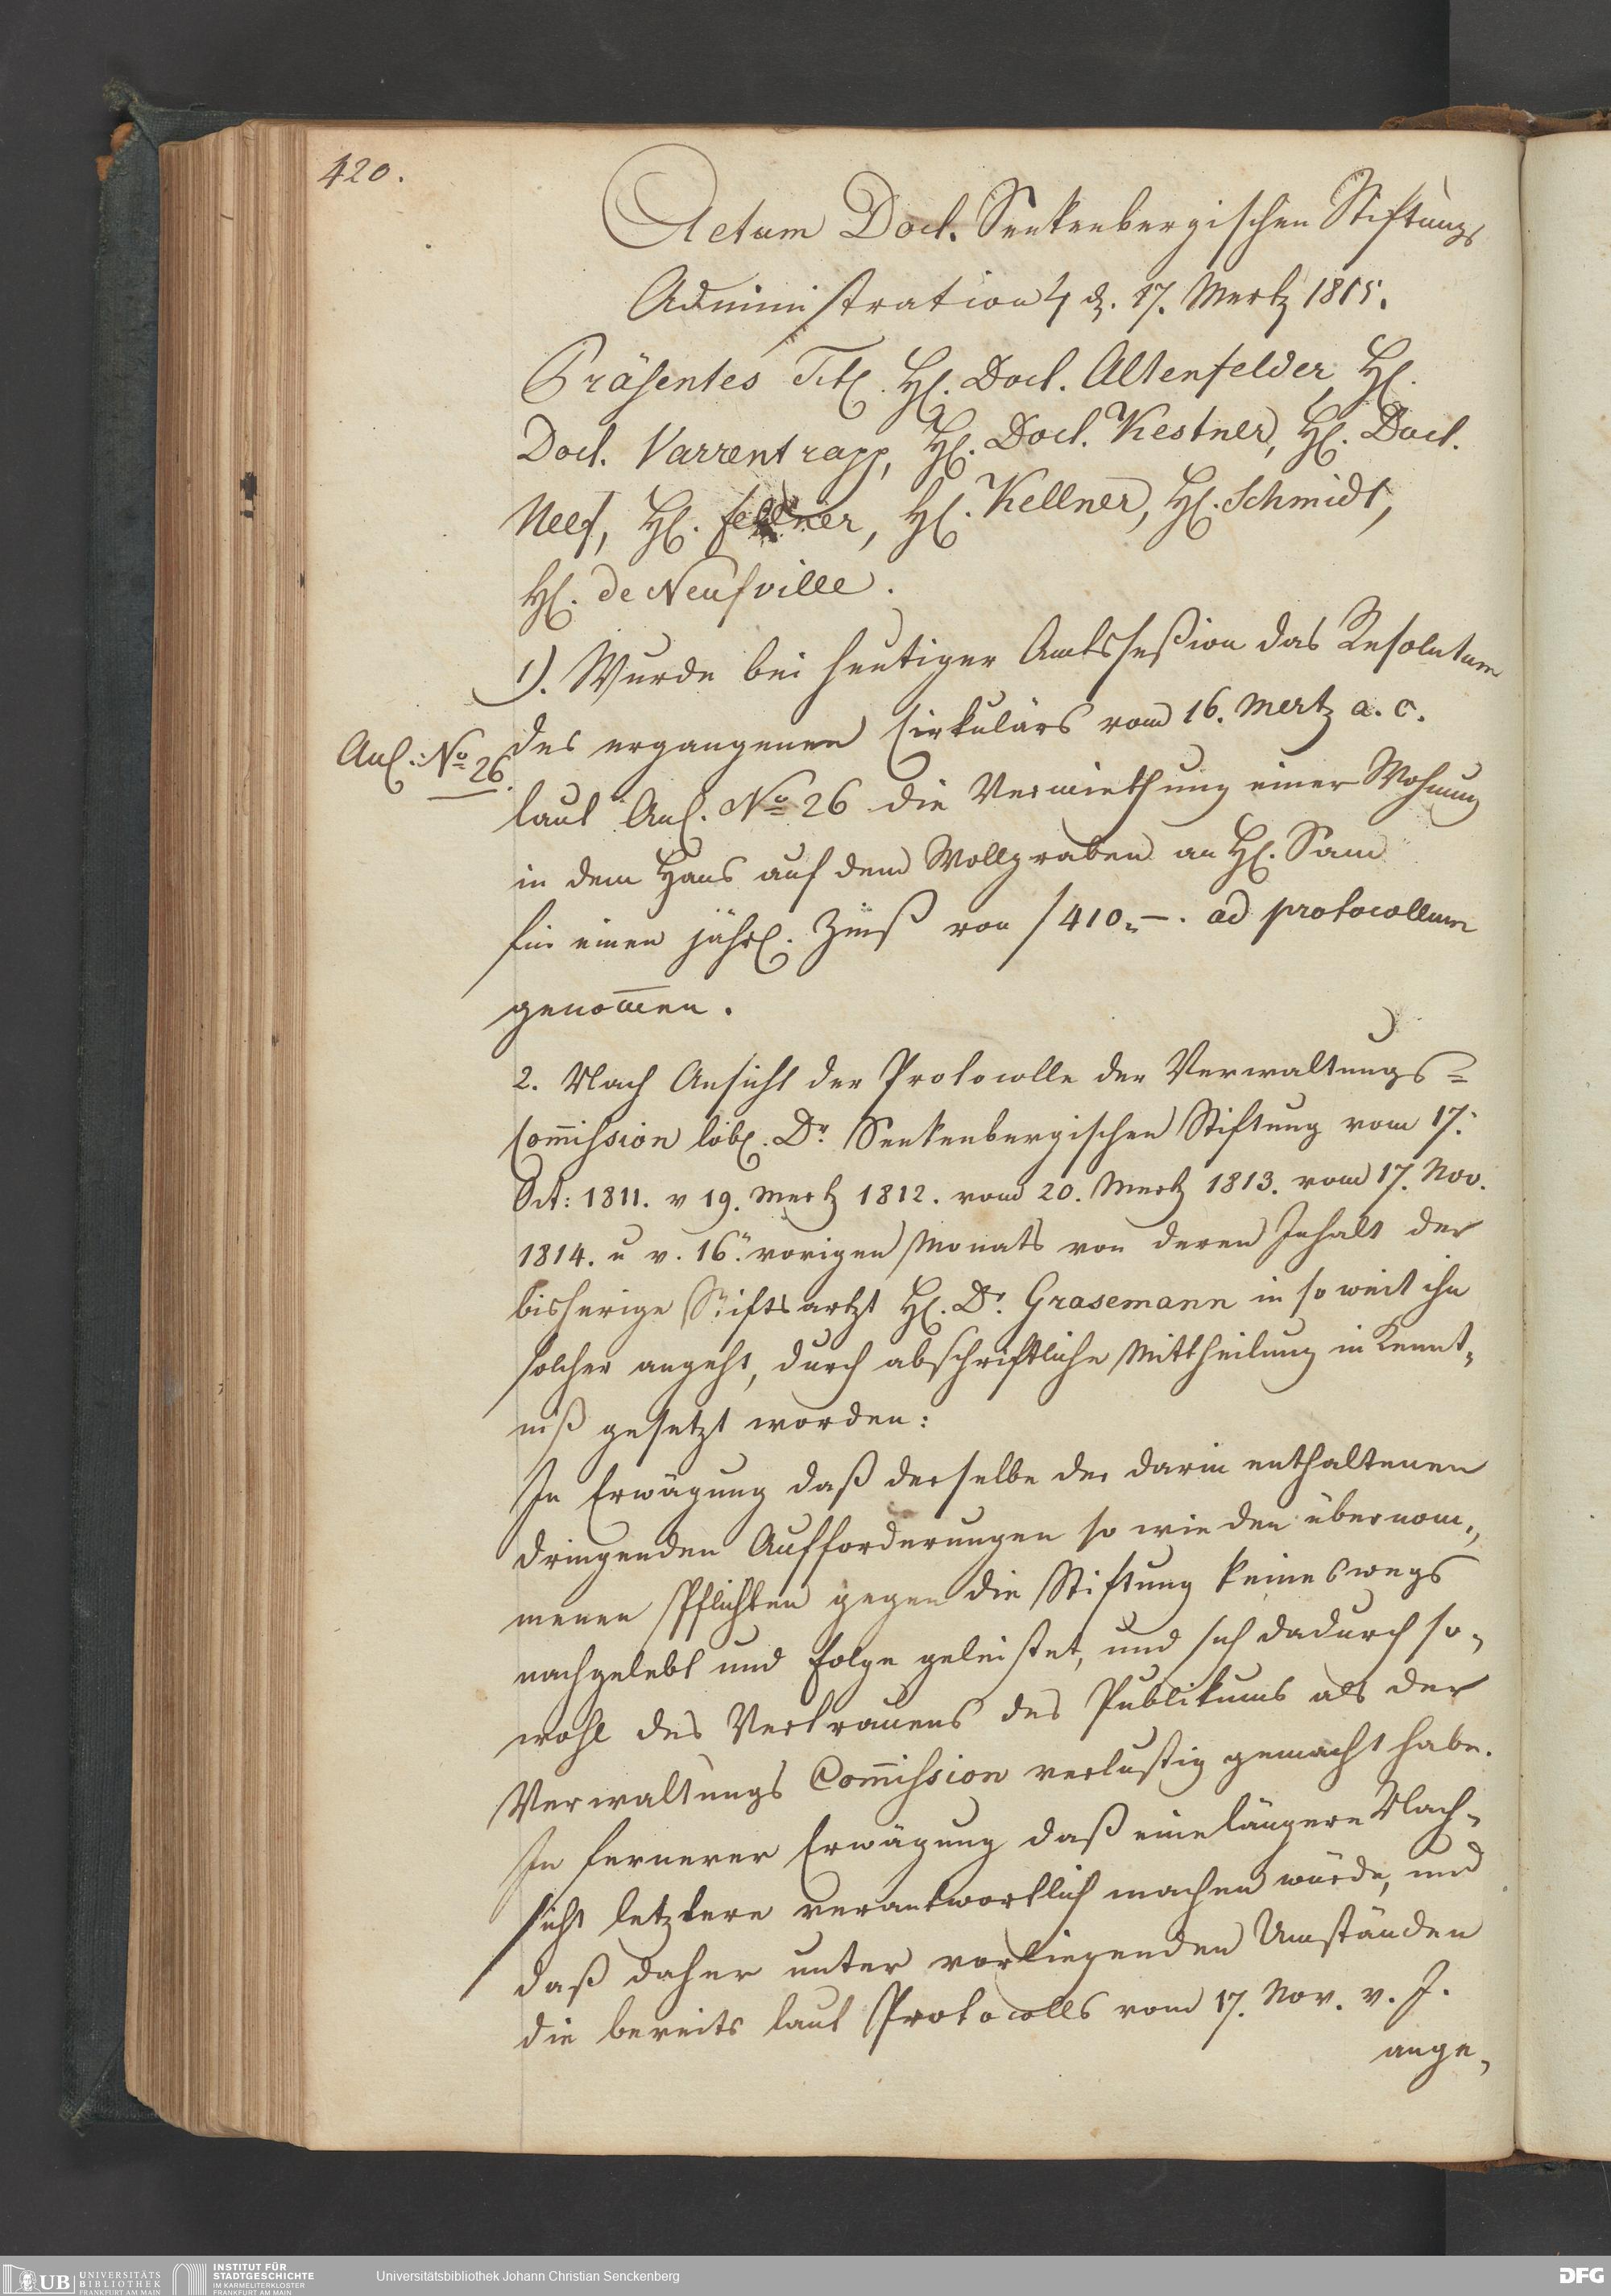 420.
Actum Doct. Senkenbergischen Stiftungs
Administration ♃ d. 17. Mertz 1815.
Präsentes Titl. H. Doct. Altenfelder, H.
Doct. Varrentrapp, H. Doct. Kestner, H. Doct.
Neef, H. Fellner, H. Kellner, H. Schmidt,
H. de Neufville.
1). Wurde bei heutiger Amtsseßion das Resolutum
des ergangenen Cirkulärs vom 16. Mertz a. c.
Anl. No 26.
laut Anl. No 26 die Vermiethung einer Wohnung
in dem Haus auf dem Wollgraben an H. Sam
für einen jährl. Zinß von f 410.-. ad protocollum
genom̅en.
2. Nach Ansicht der Protocolle der Verwaltungs-
Com̅ission löbl. Dr. Senkenbergischen Stiftung vom 17.
Oct: 1811. v 19. Mertz 1812. vom 20. Mertz 1813. vom 17. Nov.
1814. u v. 16. vorigen Monats von deren Inhalt der
bisherige Stiftsartzt H. Dr. Grasemann in so weit ihn
solcher angeht, durch abschriftliche Mittheilung in Kennt-
niß gesetzt worden:
In Erwägung daß derselbe der darin enthaltenen
dringenden Aufforderungen so wie den übernom-
menen Pflichten gegen die Stiftung keineswegs
nachgelebt und Folge geleistet, und sich dadurch so-
wohl des Vertrauens des Publikums als der
Verwaltungs Com̅ission verlustig gemacht habe.
In fernerer Erwägung daß eine längere Nach-
sicht letztere verantwortlich machen würde, und
daß daher unter vorliegenden Umständen
die bereits laut Protocolls vom 17. Nov. v. J.
ange-
UB UNIVERSITÄTS
BIBLIOTHEK
FRANKFURT AM MAIN
INSTITUT FÜR
STADTGESCHICHTE
IM KARMELITERKLOSTER
FRANKFURT AM MAIN
Universitätsbibliothek Johann Christian Senckenberg
DFG